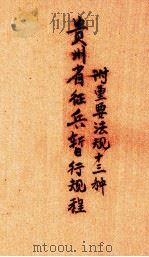 贵州省征兵暂行规程
附重要法规十三种
www.duxiu.com